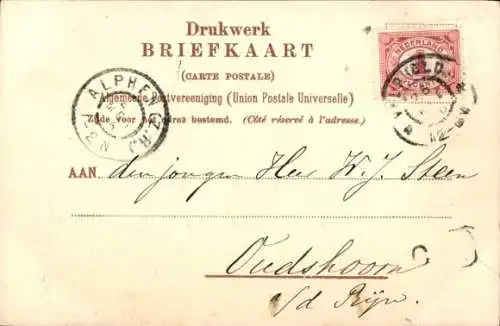 Drukwerk
BRIEFKAART
(CARTE POSTALE)
Algemeene Postvereeniging (Union Postale Universelle)
Zijde voor het adres bestemd. (Côté réservé à l'adresse.)
NEDERLAND
ALPHEN (Z.H.)
AAN den jongen Heer K. J. Steen
Oudshoorn
s/d Rijn.